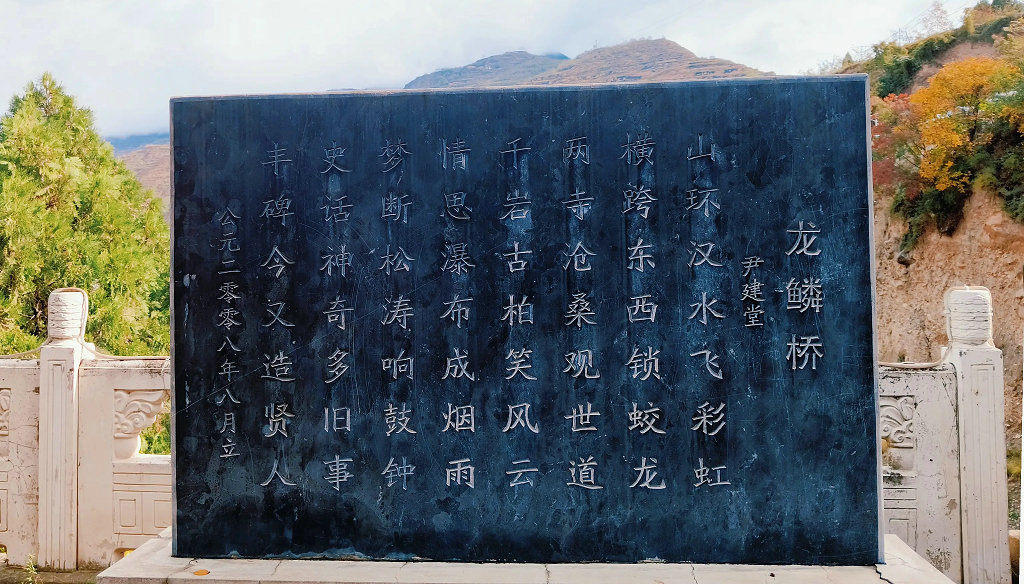 龙鳞桥
尹建堂
山环汉水飞彩虹
横跨东西锁蛟龙
两寺沧桑观世道
千岩古柏笑风云
情思瀑布成烟雨
梦断松涛响鼓钟
史话神奇多旧事
丰碑今又造贤人
公元二零零八年八月立